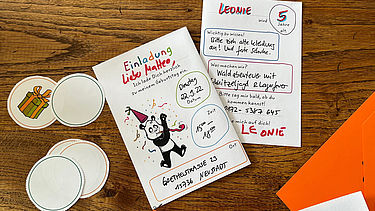 Einladung
Liebe Matteo!
Ich lade Dich herzlich
zu meinem Geburtstag ein.
Dienstag
22.9.22
Datum
Zeit
15:00
18:00
Ort
GOETHESTRASSE 23
NEUSTADT
LEONIE
wird
5
Jahre
alt.
Wichtig zu wissen!
Bitte zieh alte Kleidung
an! Und feste Schuhe.
Was machen wir?
Waldabenteuer mit
Schnitzeljagd & Lagerfeuer
Bitte sag mir bald, ob du
kommen kannst!
auf dich!
LEONIE